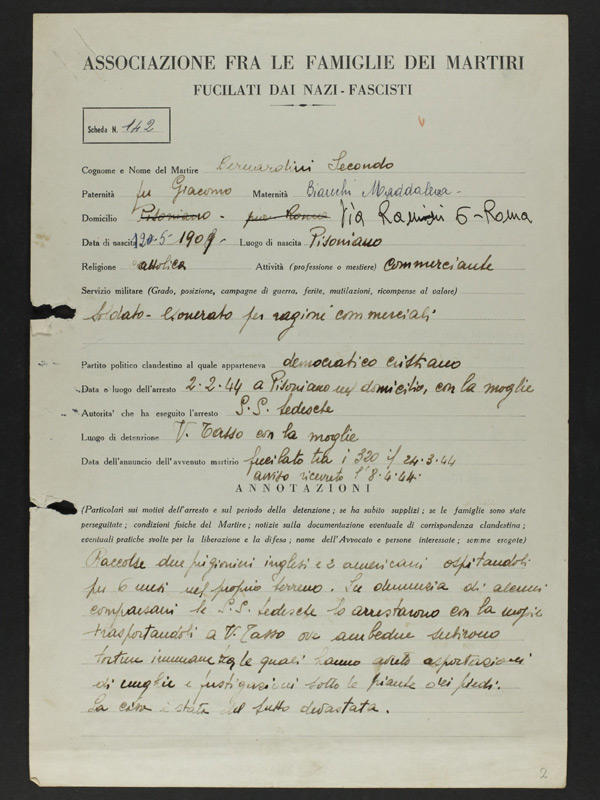 ASSOCIAZIONE FRA LE FAMIGLIE DEI MARTIRI
FUCILATI DAI NAZI-FASCISTI
Scheda N. 142
Cognome e Nome del Martire Bernardini Secondo
Paternità fu Giacomo Maternità Bianchi Maddalena -
Domicilio Pisoniano - Via 6 - Roma
Data di nascita 5-1909 - Luogo di nascita Pisoniano
Religione cattolica Attività (professione o mestiere) commerciante
Servizio militare (Grado, posizione, campagne di guerra, ferite, mutilazioni, ricompense al valore)
Soldato - Esonerato per ragioni commerciali
Partito politico clandestino al quale apparteneva democratico cristiano
Data e luogo dell'arresto 2-2-44 a Pisoniano nel domicilio, con la moglie
Autorita' che ha eseguito l'arresto S.S. tedesche
Luogo di detenzione V. Tasso con la moglie
Data dell'annuncio dell'avvenuto martirio fucilato tra i 320 il 24-3-44
avviso ricevuto l'8-4-44.
ANNOTAZIONI
(Particolari sui motivi dell'arresto e sul periodo della detenzione; se ha subito supplizi; se le famiglie sono state
perseguitate; condizioni fisiche del Martire; notizie sulla documentazione eventuale di corrispondenza clandestina;
eventuali pratiche svolte per la liberazione e la difesa; nome dell'Avvocato e persone interessate; somme erogate)
Raccolse due prigionieri inglesi e 2 americani ospitandoli
per 6 mesi nel proprio terreno. Su denunzia di alcuni
compaesani le S.S. tedesche lo arrestarono con la moglie
trasportandoli a V. Tasso ove ambedue subirono
torture inumane tra le quali hanno avuto asportazioni
di unghie e fustigazioni sotto le piante dei piedi.
La casa è stata del tutto devastata.
2